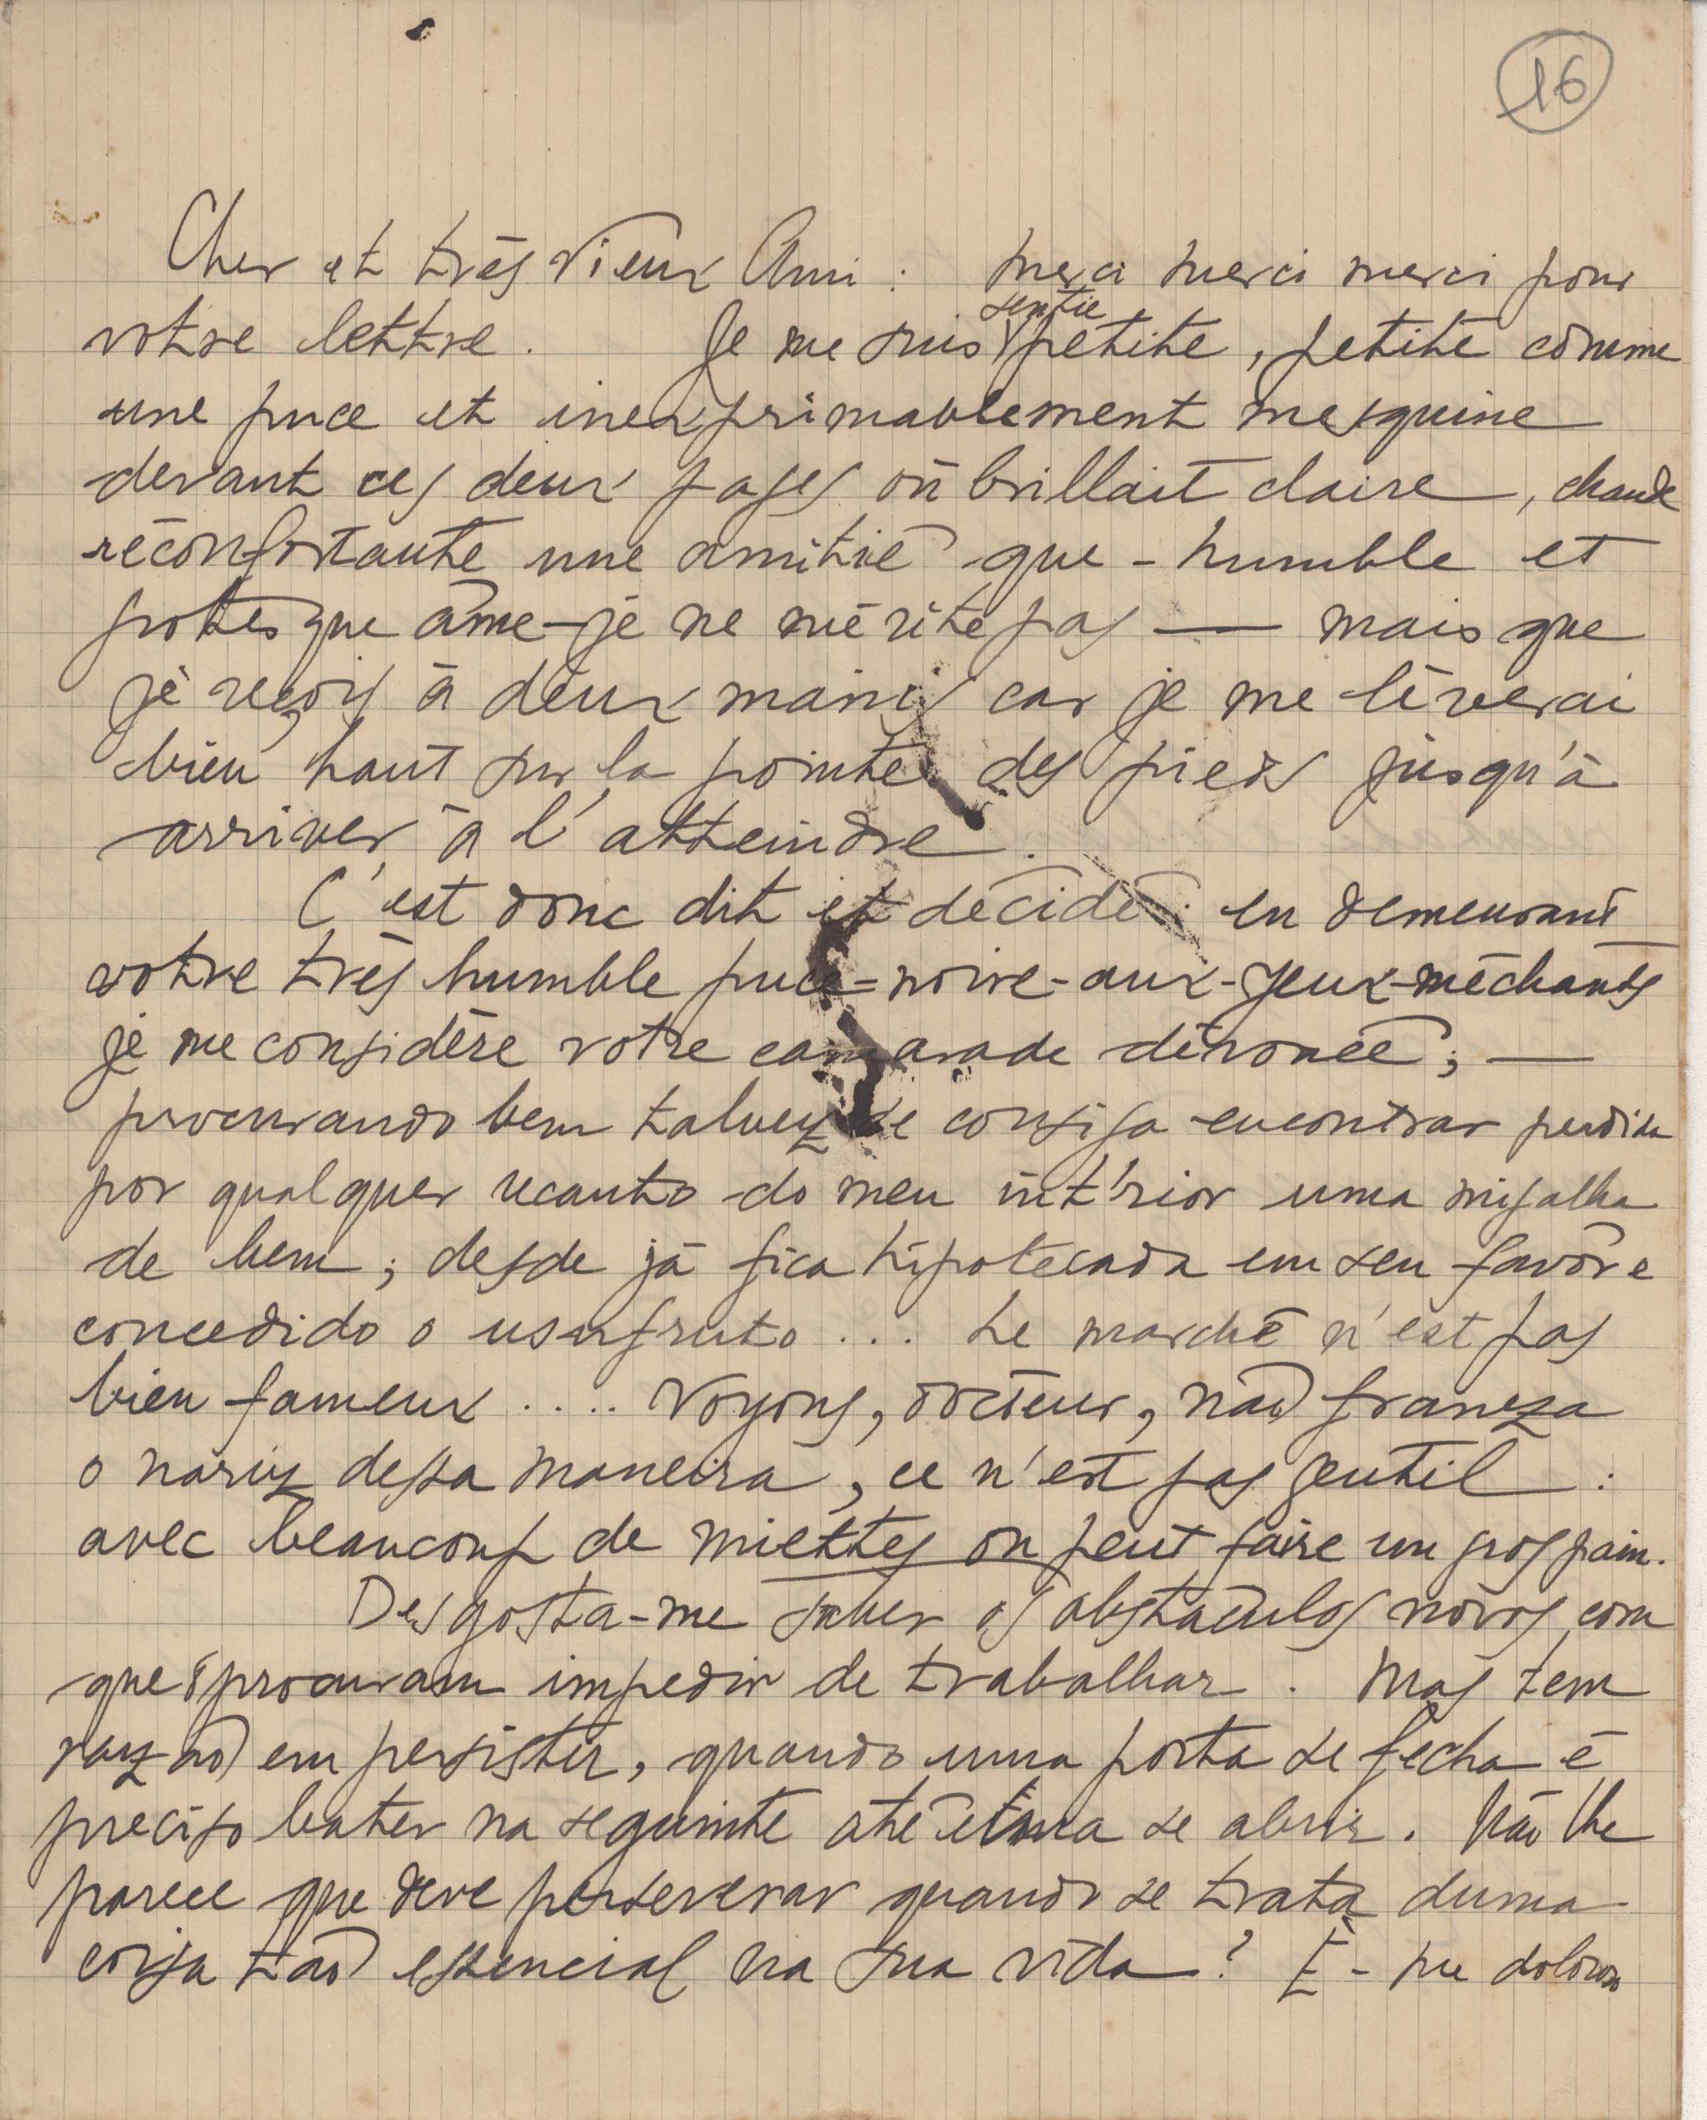 16
Cher et très vieux Ami : merci merci merci pour
sentie
votre lettre. Je me suis petite, petite comme
une puce et inexprimablement mesquine
devant ces deux pages où brillait claire, chaude
réconfortante une amitié que - humble et
grotesque âme - je ne mérite pas — mais que
je reçois à deux mains car je me lèverai
bien haut sur la pointe des pieds jusqu'à
arriver à l'atteindre.
C'est donc dit et décidé : en demeurant
votre très humble puce-noire-aux-yeux-méchants
je me considère votre camarade dévouée ; —
procurando bem talvez se consiga encontrar perdida
por qualquer recanto do meu int'rior uma migalha
de bem ; desde já fica hipotecada em seu favôr e
concedido o usufruto ... Le marché n'est pas
bien fameux .... Voyons, docteur, não franza
o nariz dessa maneira, ce n'est pas gentil :
avec beaucoup de miettes on peut faire un gros pain.
Desgosta-me saber os obstáculos novos com
que o procuram impedir de trabalhar. Mas tem
razão em persistir, quando uma porta se fecha é
preciso bater na seguinte até uma se abrir. Não lhe
parece que deve perseverar quando se trata duma
coisa tão essencial na sua vida ? É-me doloroso